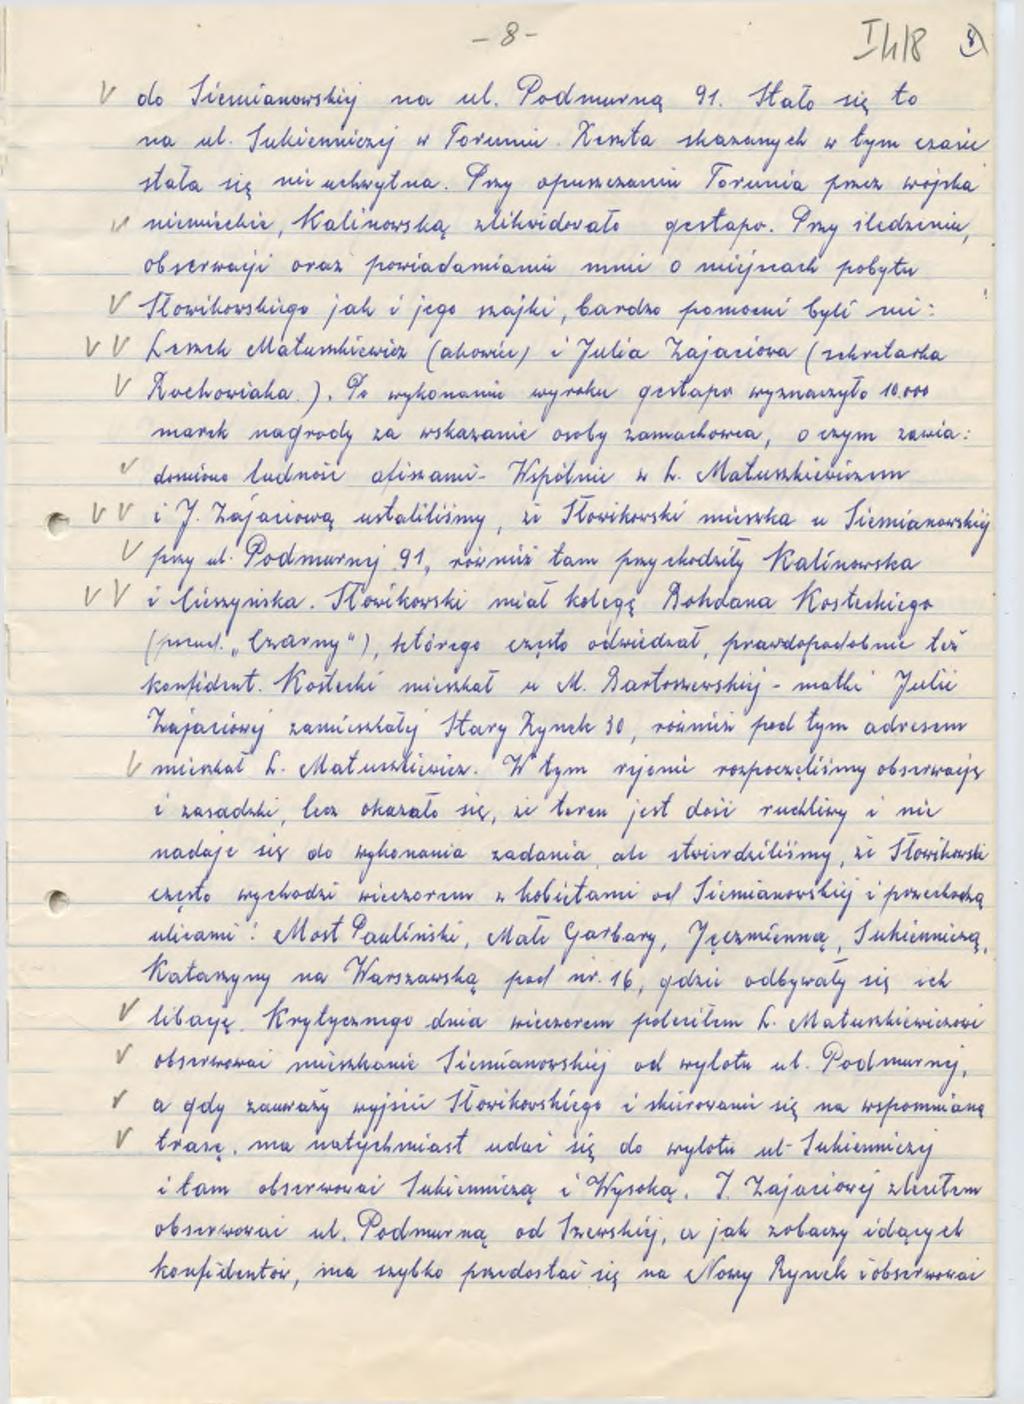 - 8 -
I/4/8 8
do Siemianowskiej na ul. Podmurną 91. Stało się to
na ul. Sukienniczej w Toruniu. Reszta skazanych w tym czasie
stała się nie uchwytna. Przy opuszczaniu Torunia przez wojska
niemieckie, Kalinowską zlikwidowało gestapo. Przy śledzeniu,
obserwacji oraz powiadamianiu mnie o miejscach pobytu
Słowikowskiego jak i jego szajki, bardzo pomocni byli mi:
Leszek Matuszkiewicz (akowiec) i Julia Zającowa (sekretarka
Rochowiaka). Po wykonaniu wyroku gestapo wyznaczyło 10.000
marek nagrody za wskazanie osoby zamachowca, o czym zawia:
domiono ludność afiszami. Wspólnie z L. Matuszkiewiczem
i J. Zającową ustaliliśmy, że Słowikowski mieszka u Siemianowskiej
przy ul. Podmurnej 91, również tam przychodziły Kalinowska
i Cieszyńska. Słowikowski miał kolegę Bohdana Kosteckiego
(pseud. „Czarny"), którego często odwiedzał, prawdopodobnie też
konfident. Kostecki mieszkał u M. Bartoszewskiej - matki Julii
Zającowej zamieszkałej Stary Rynek 30, również pod tym adresem
mieszkał L. Matuszkiewicz. W tym rejonie rozpoczęliśmy obserwację
i zasadzki, lecz okazało się, że teren jest dość ruchliwy i nie
nadaje się do wykonania zadania, ale stwierdziliśmy, że Słowikowski
często wychodzi wieczorem z kobietami od Siemianowskiej i przechodzą
ulicami: Most Pauliński, Małe Garbary, Jęczmienną, Sukienniczą,
Katarzyny na Warszawską pod nr. 16, gdzie odbywały się ich
libacje. Krytycznego dnia wieczorem poleciłem L. Matuszkiewiczowi
obserwować mieszkanie Siemianowskiej od wylotu ul. Podmurnej,
a gdy zauważy wyjście Słowikowskiego i skierowanie się na wspomnianą
trasę, ma natychmiast udać się do wylotu ul. Sukienniczej
i tam obserwować Sukienniczą i Wysoką. J. Zającowej zleciłem
obserwować ul. Podmurną od Szewskiej, a jak zobaczy idących
konfidentów, ma szybko przedostać się na Nowy Rynek i obserwować